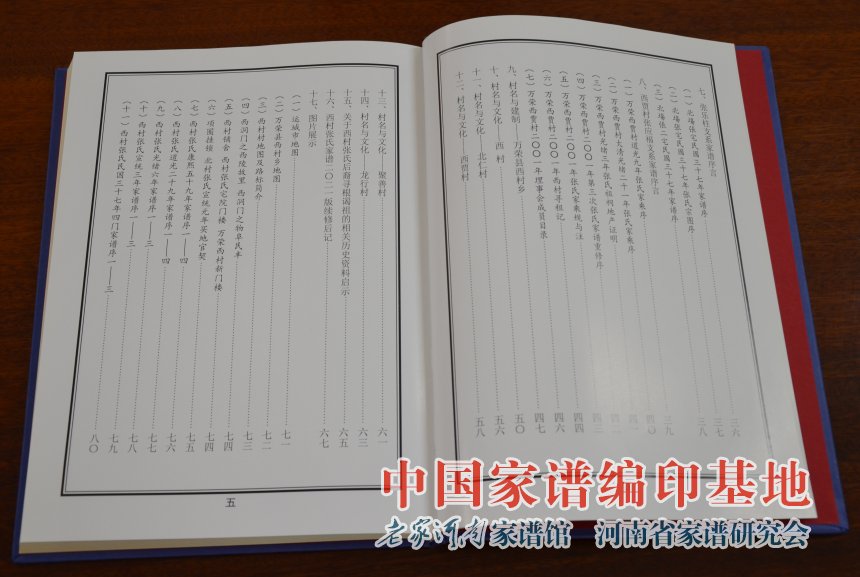 七、张乐柱支系家谱序言
(一)北场张宅民国三十七年家谱序 三六
(二)北场张宅民国三十七年张氏宗图序 三七
(三)北场张二宅民国三十七年家谱序 三八
八、西贾村张应福支系家谱序言 三九
(一)万荣西贾村道光九年张氏家乘序 四〇
(二)万荣西贾村大清光绪二十一年张氏家乘序 四一
(三)万荣西贾村光绪三年张氏祖祠地产证明 四二
(四)万荣西贾村二〇〇一年第三次张氏家谱重修序 四二
(五)万荣西贾村二〇〇一年张氏家乘规与注 四四
(六)万荣西贾村二〇〇一年西村寻祖记 四六
(七)万荣西贾村二〇〇一年理事会成员目录 四七
九、村名与建制 万荣县西村乡 五〇
十、村名与文化 西村
十一、村名与文化 北仁村 五六
十二、村名与文化——西贾村 五八
十三、村名与文化 聚善村 六一
十四、村名与文化 龙行村 六三
十五、关于西村张氏后裔寻根谒祖的相关历史资料启示 六五
十六、西村张氏家谱二〇二一版续修后记 六七
十七、图片展示
(一)运城市地图 七一
(二)万荣县西村乡地图
(三)西村村地图及路标简介 七二
(四)西涧门之西陵故里 西涧门之物阜民丰 七三
(五)西村铺舍 西村张氏宅院门楼 万荣西村新门楼 七四
(六)项圈挂接 北村张氏宣统元年买地官契 七四
(七)西村张氏康熙五十九年家谱序 七五
(八)西村张氏道光二十九年家谱序一——四 七六
(九)西村张氏光绪六年家谱序一——三 七七
(十)西村张氏宣统三年家谱序一——三 七八
(十一)西村张氏民国三十七年四门家谱序一——三 七九
八〇
五
中国家谱编印基地
老家河南家谱馆 河南省家谱研究会